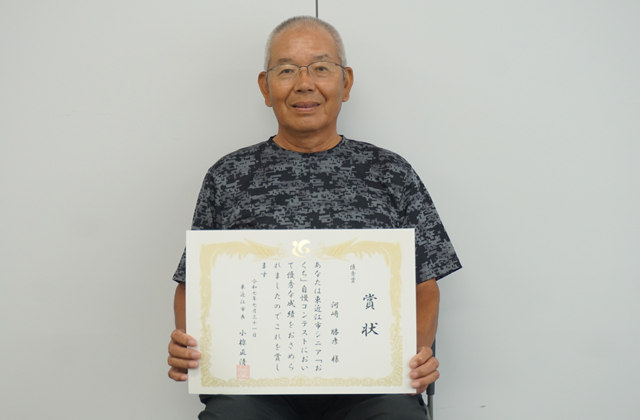 賞状
優秀賞
河崎 勝彦 様
あなたは東近江市シニア「お
くち」自慢コンテストにおい
て優秀な成績をおさめら
れましたのでこれを賞し
ます
令和元年七月三十一日
東近江市長 小椋正清